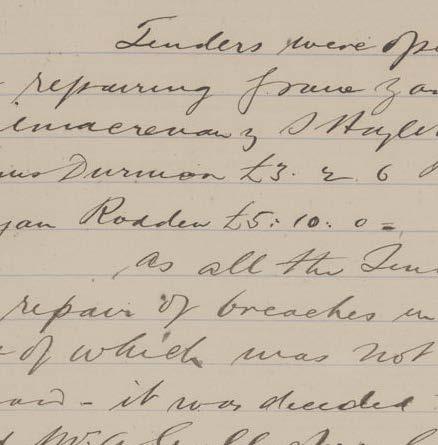 Tenders were ope
repairing grave ya
&
us Durmon £3. 2. 6
yan Rodden £5: 10: 0 =
As all the Ten
repair of breaches in
of which was not
- it was decided